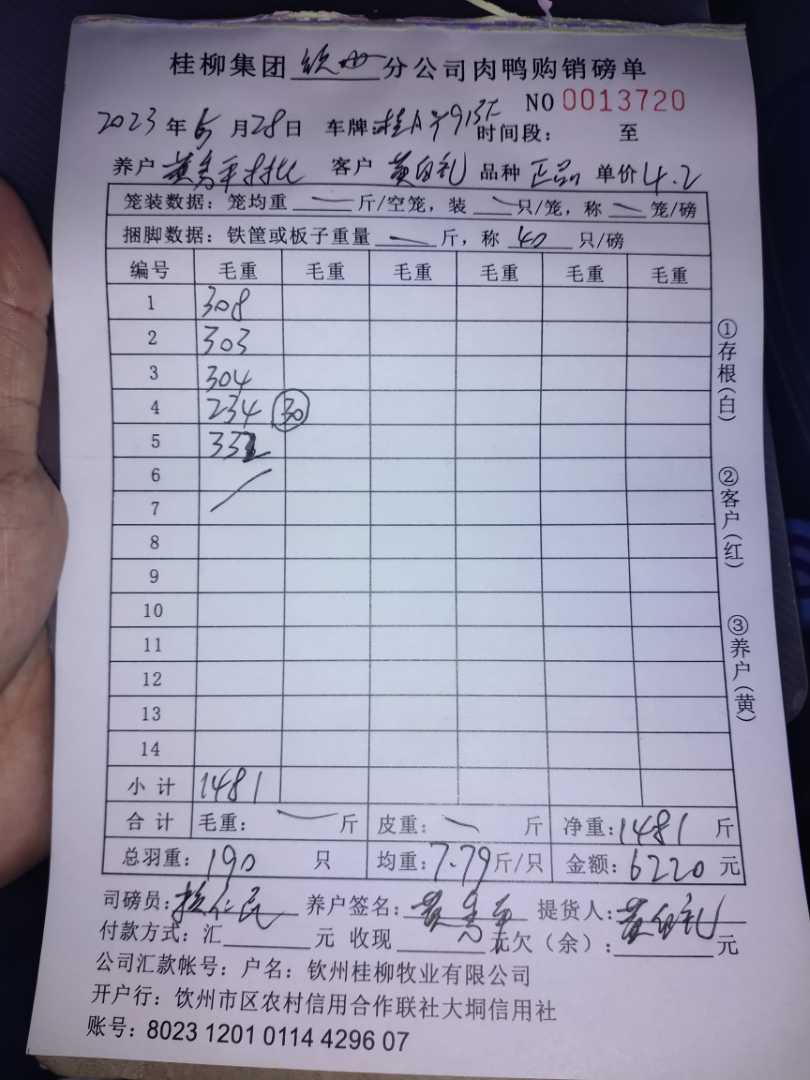 桂柳集团钦州分公司肉鸭购销磅单
NO 0013720
2023年6月28日 车牌桂A 时间段： 至
养户 黄秀平 客户 黄自礼 品种 正品 单价4.2
笼装数据：笼均重 — 斤/空笼，装 — 只/笼，称 — 笼/磅
捆脚数据：铁筐或板子重量 — 斤，称 40 只/磅
编号 毛重 毛重 毛重 毛重 毛重 毛重
1 308
2 303
3 304
4 234 30
5 332
6
7
8
9
10
11
12
13
14
小计 1481
合计 毛重： — 斤 皮重： — 斤 净重：1481 斤
总羽重：190 只 均重：7.79斤/只 金额：6220元
司磅员： 养户签名：黄秀平 提货人：黄自礼
付款方式：汇 元 收现 元欠（余）： 元
公司汇款帐号：户名：钦州桂柳牧业有限公司
开户行：饮州市区农村信用合作联社大垌信用社
账号：8023 1201 0114 4296 07
①存根（白）
②客户（红）
③养户（黄）